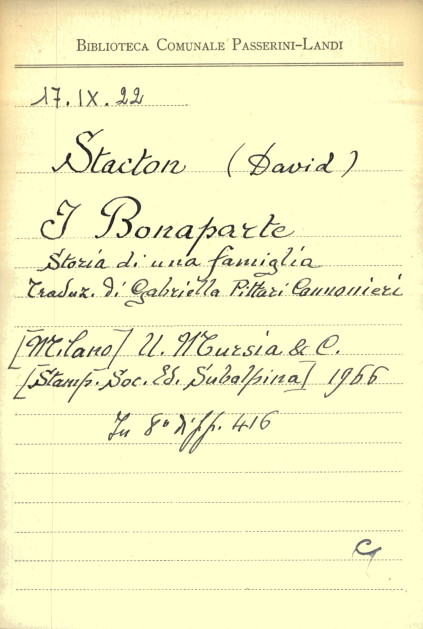 BIBLIOTECA COMUNALE PASSERINI-LANDI
17.IX.22
Stacton (David)
I Bonaparte
Storia di una famiglia
Traduz. di Gabriella Pittari Cannonieri
[Milano] U. Mursia & C.
[Stamp. Soc. Ed. Subalpina] 1966
In 8° di pp. 416